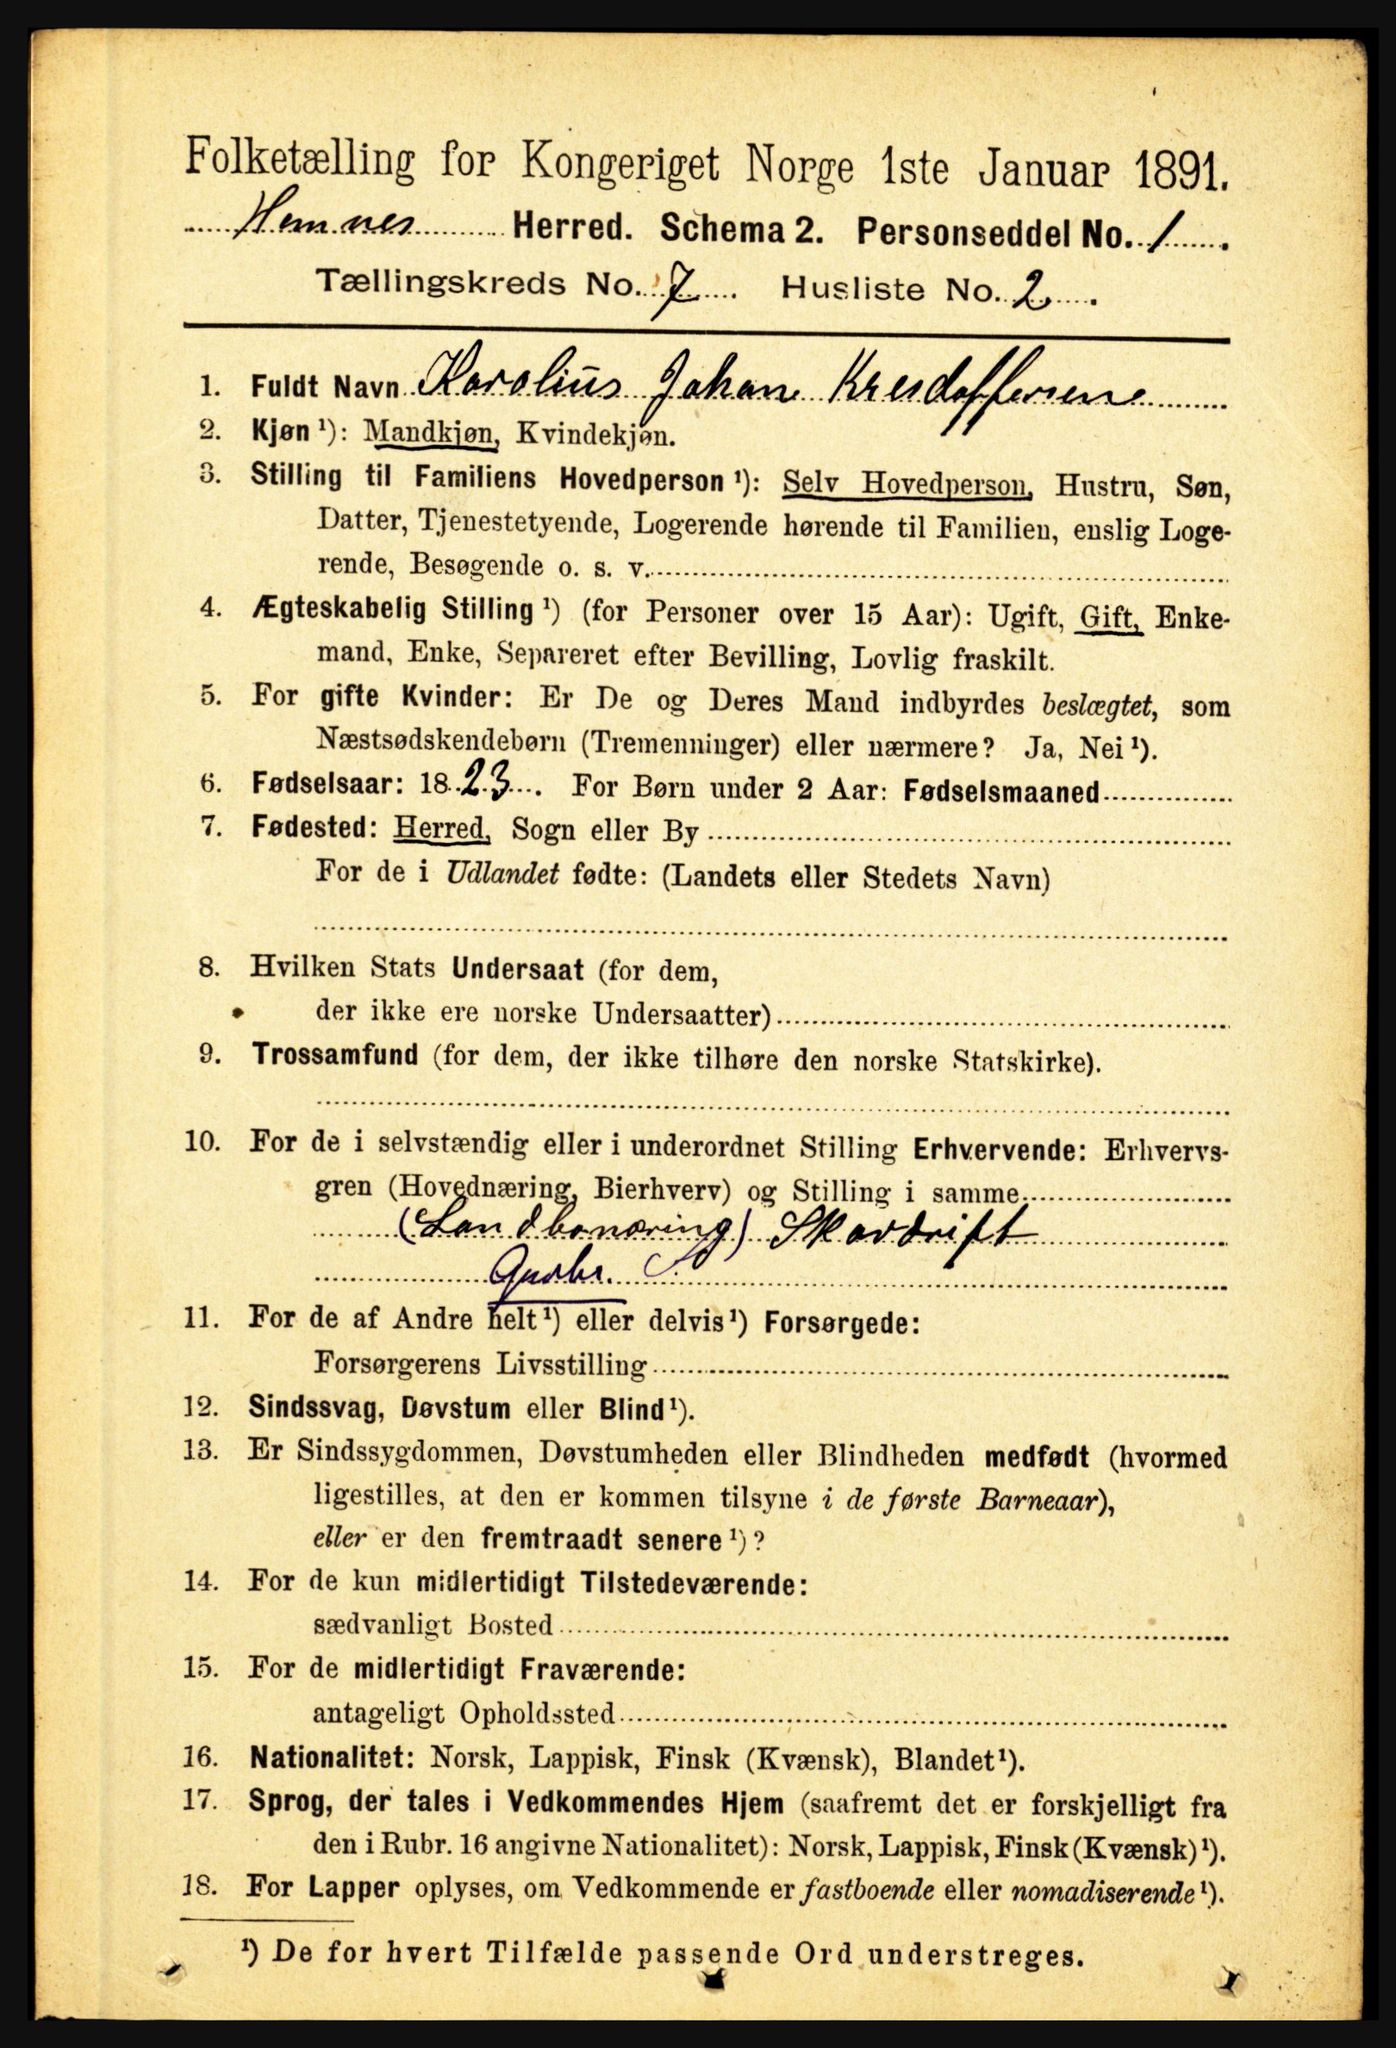 Folketælling for Kongeriget Norge 1ste Januar 1891.
Hemnes Herred. Schema 2. Personseddel No. 1.
Tællingskreds No. 7. Husliste No. 2.
1. Fuldt Navn Karolius Johan Kresdoffersen
2. Kjøn ¹): Mandkjøn, Kvindekjøn.
3. Stilling til Familiens Hovedperson ¹): Selv Hovedperson, Hustru, Søn,
Datter, Tjenestetyende, Logerende hørende til Familien, enslig Loge-
rende, Besøgende o. s. v.
4. Ægteskabelig Stilling ¹) (for Personer over 15 Aar): Ugift, Gift, Enke-
mand, Enke, Separeret efter Bevilling, Lovlig fraskilt.
5. For gifte Kvinder: Er De og Deres Mand indbyrdes beslægtet, som
Næstsødskendebørn (Tremenninger) eller nærmere? Ja, Nei ¹).
6. Fødselsaar: 1823. For Børn under 2 Aar: Fødselsmaaned
7. Fødested: Herred, Sogn eller By
For de i Udlandet fødte: (Landets eller Stedets Navn)
8. Hvilken Stats Undersaat (for dem,
der ikke ere norske Undersaatter)
9. Trossamfund (for dem, der ikke tilhøre den norske Statskirke).
10. For de i selvstændig eller i underordnet Stilling Erhvervende: Erhvervs-
gren (Hovednæring, Bierhverv) og Stilling i samme
(Landbonæring) Skovdrift
Gaabr. S
11. For de af Andre helt ¹) eller delvis ¹) Forsørgede:
Forsørgerens Livsstilling
12. Sindssvag, Døvstum eller Blind ¹).
13. Er Sindssygdommen, Døvstumheden eller Blindheden medfødt (hvormed
ligestilles, at den er kommen tilsyne i de første Barneaar),
eller er den fremtraadt senere ¹)?
14. For de kun midlertidigt Tilstedeværende:
sædvanligt Bosted
15. For de midlertidigt Fraværende:
antageligt Opholdssted
16. Nationalitet: Norsk, Lappisk, Finsk (Kvænsk), Blandet ¹).
17. Sprog, der tales i Vedkommendes Hjem (saafremt det er forskjelligt fra
den i Rubr. 16 angivne Nationalitet): Norsk, Lappisk, Finsk (Kvænsk) ¹).
18. For Lapper oplyses, om Vedkommende er fastboende eller nomadiserende ¹).
¹) De for hvert Tilfælde passende Ord understreges.